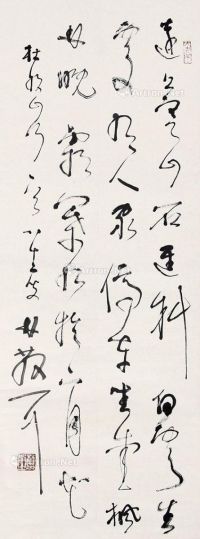 遠上寒山石逕斜白雲生
處有人家停車坐愛楓
林晚霜葉紅於二月花
杜牧山行 林散耳